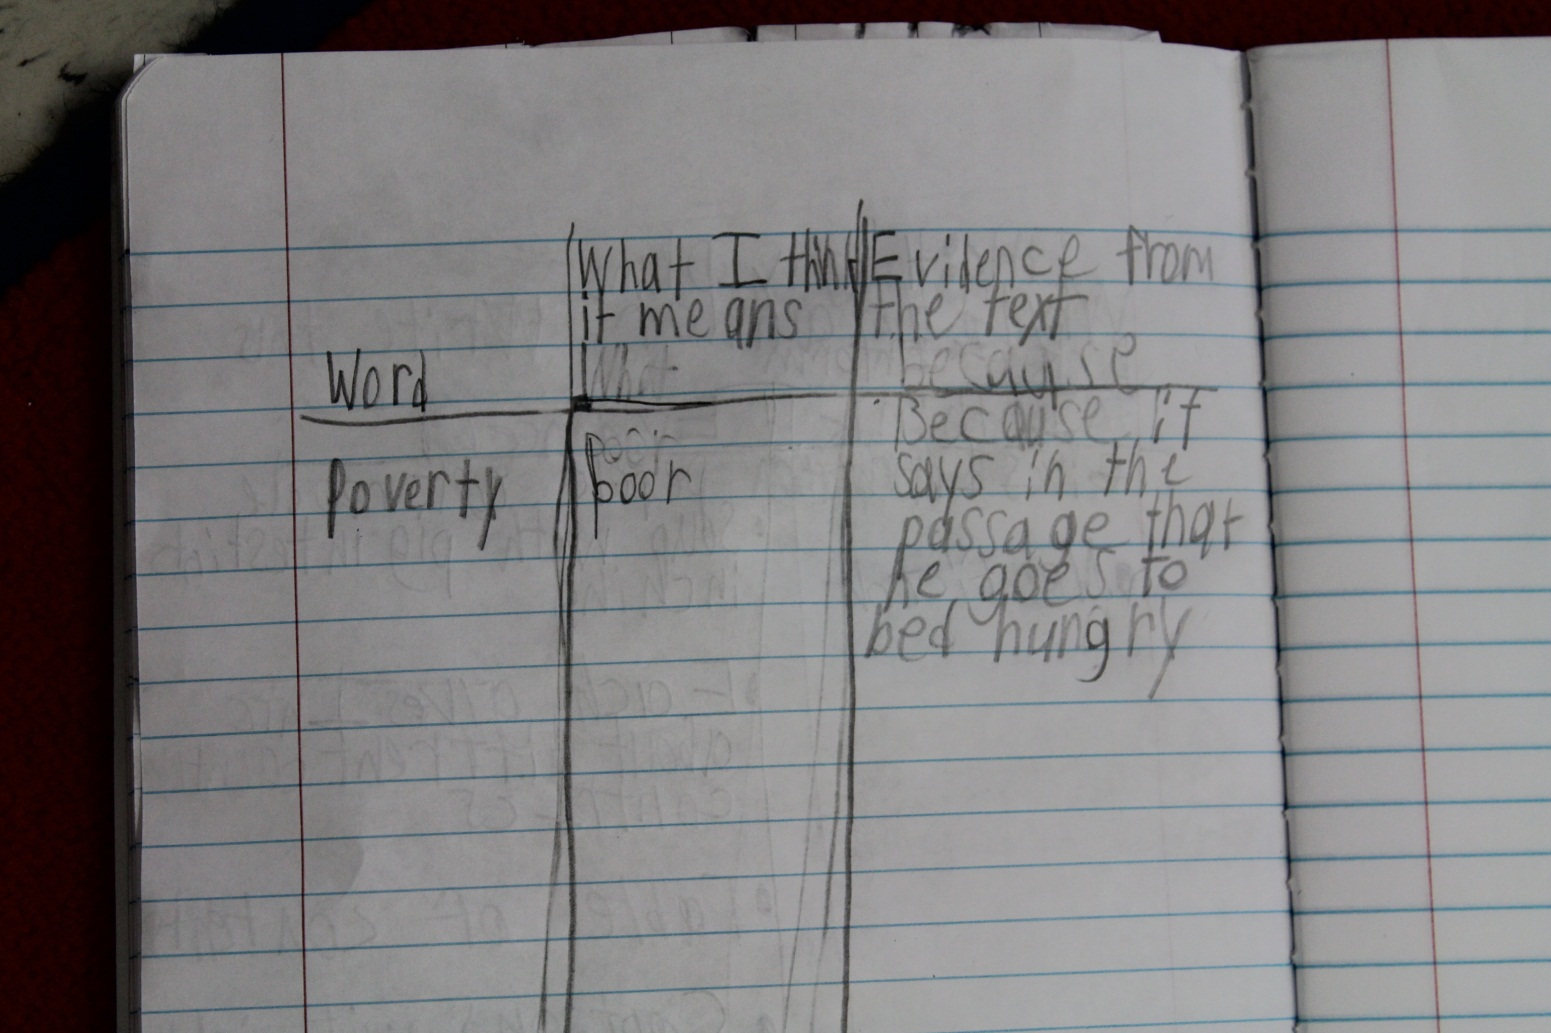 What I think
it means
Evidence from
the text
Word
Poverty
Poor
Because it
says in the
passage that
he goes to
bed hungry